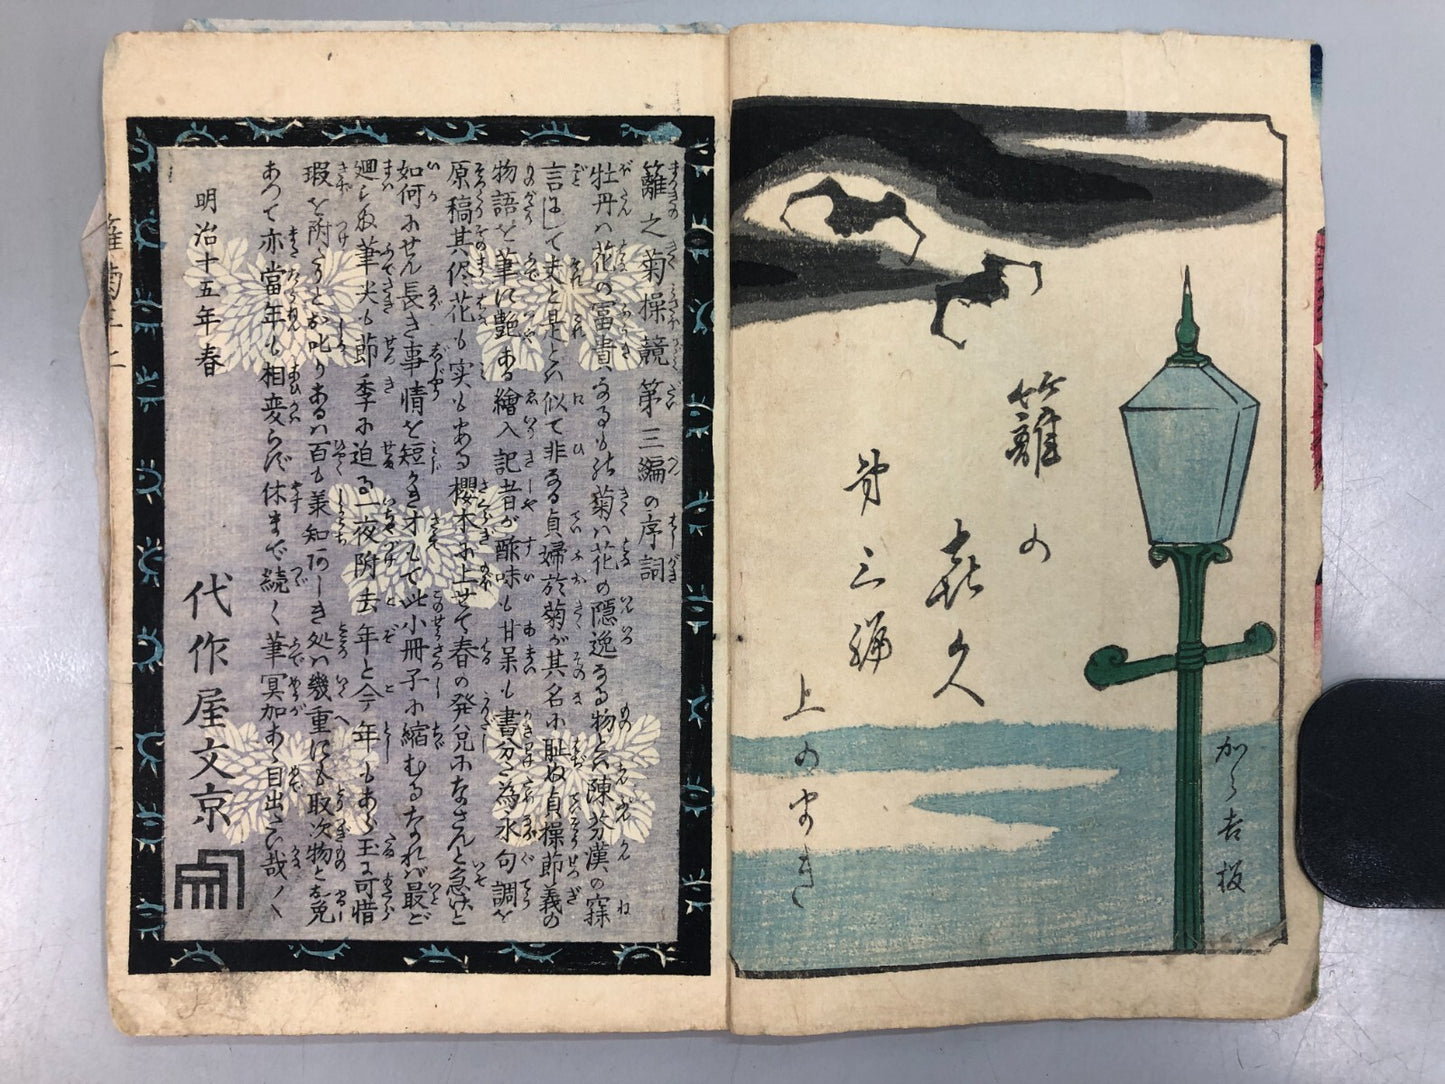 籬の
喜久
第三編
上のまき
加賀吉板
籬之菊操競第三編の序詞
牡丹ハ花の冨貴なるも の菊ハ花の隠逸なる物とハ陳芬漢の寐
言にして夫と是とハ似て非なる貞婦於菊が其名に耻ぬ貞操節義の
物語を筆に艶ある繪入記者が酢味も甘味も書分て為永句調を
原稿其侭花も実もある櫻木に上せて春の発兌になさんと急げど
如何にせん長き事情を短かき才もて此小冊子に縮むるなれバ最ど
廻らぬ筆尖も節季に迫る一夜附去年と今年もあら玉に可惜
瑕を附けうとお叱りあるハ百も羕知 しき処ハ幾重にも取次物と お免
あつて亦當年も相変らず休まで続く筆冥加あゝ目出たい哉〳〵
明治十五年春
代作屋文京
籬菊三上